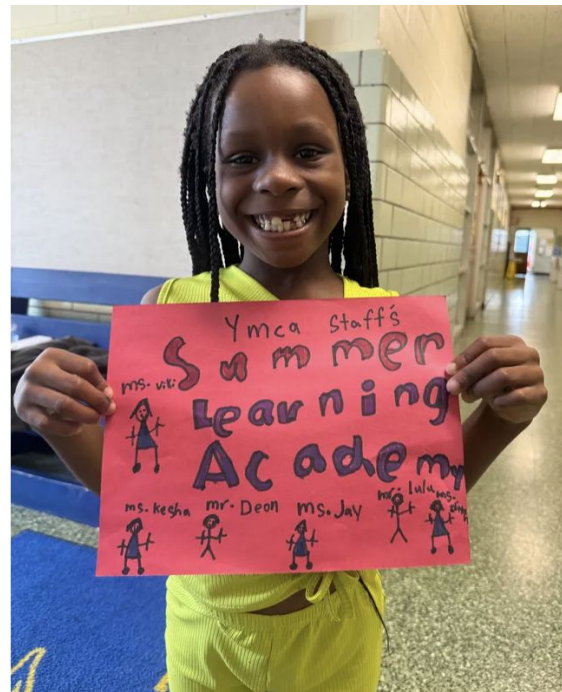 Ymca Staff's
Summer
ms. viki
Learning
Academy
ms. Kesha
mr. Deon
ms. Jay
mr. lulu
ms.